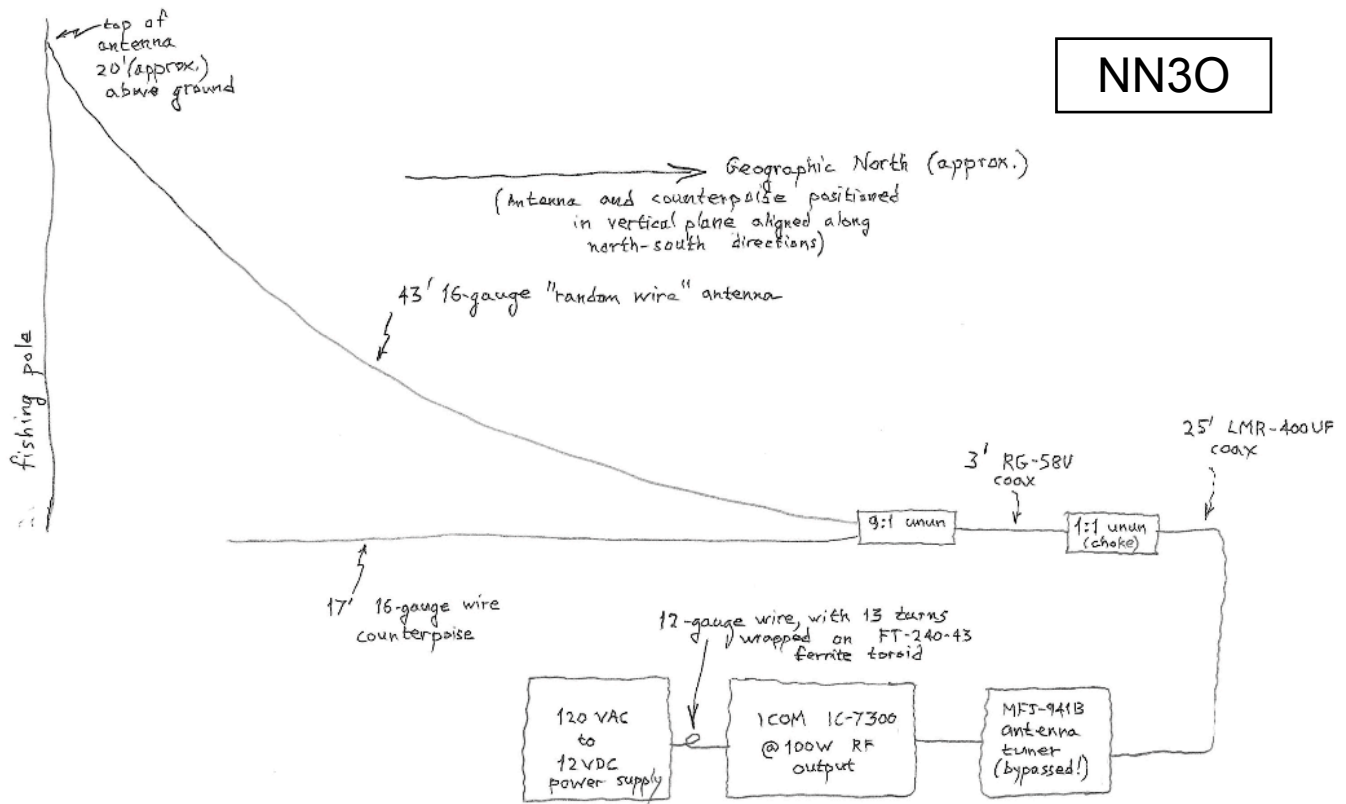 top of
antenna
20' (approx.)
above ground
NN3O
Geographic North (approx.)
(Antenna and counterpoise positioned
in vertical plane aligned along
north-south directions)
43' 16-gauge "random wire" antenna
fishing pole
25' LMR-400UF
coax
3' RG-58U
coax
9:1 unun
1:1 unun
(choke)
17' 16-gauge wire
counterpoise
12-gauge wire, with 13 turns
wrapped on FT-240-43
ferrite toroid
120 VAC
to
12VDC
power supply
ICOM IC-7300
@100W RF
output
MFJ-941B
antenna
tuner
(bypassed!)